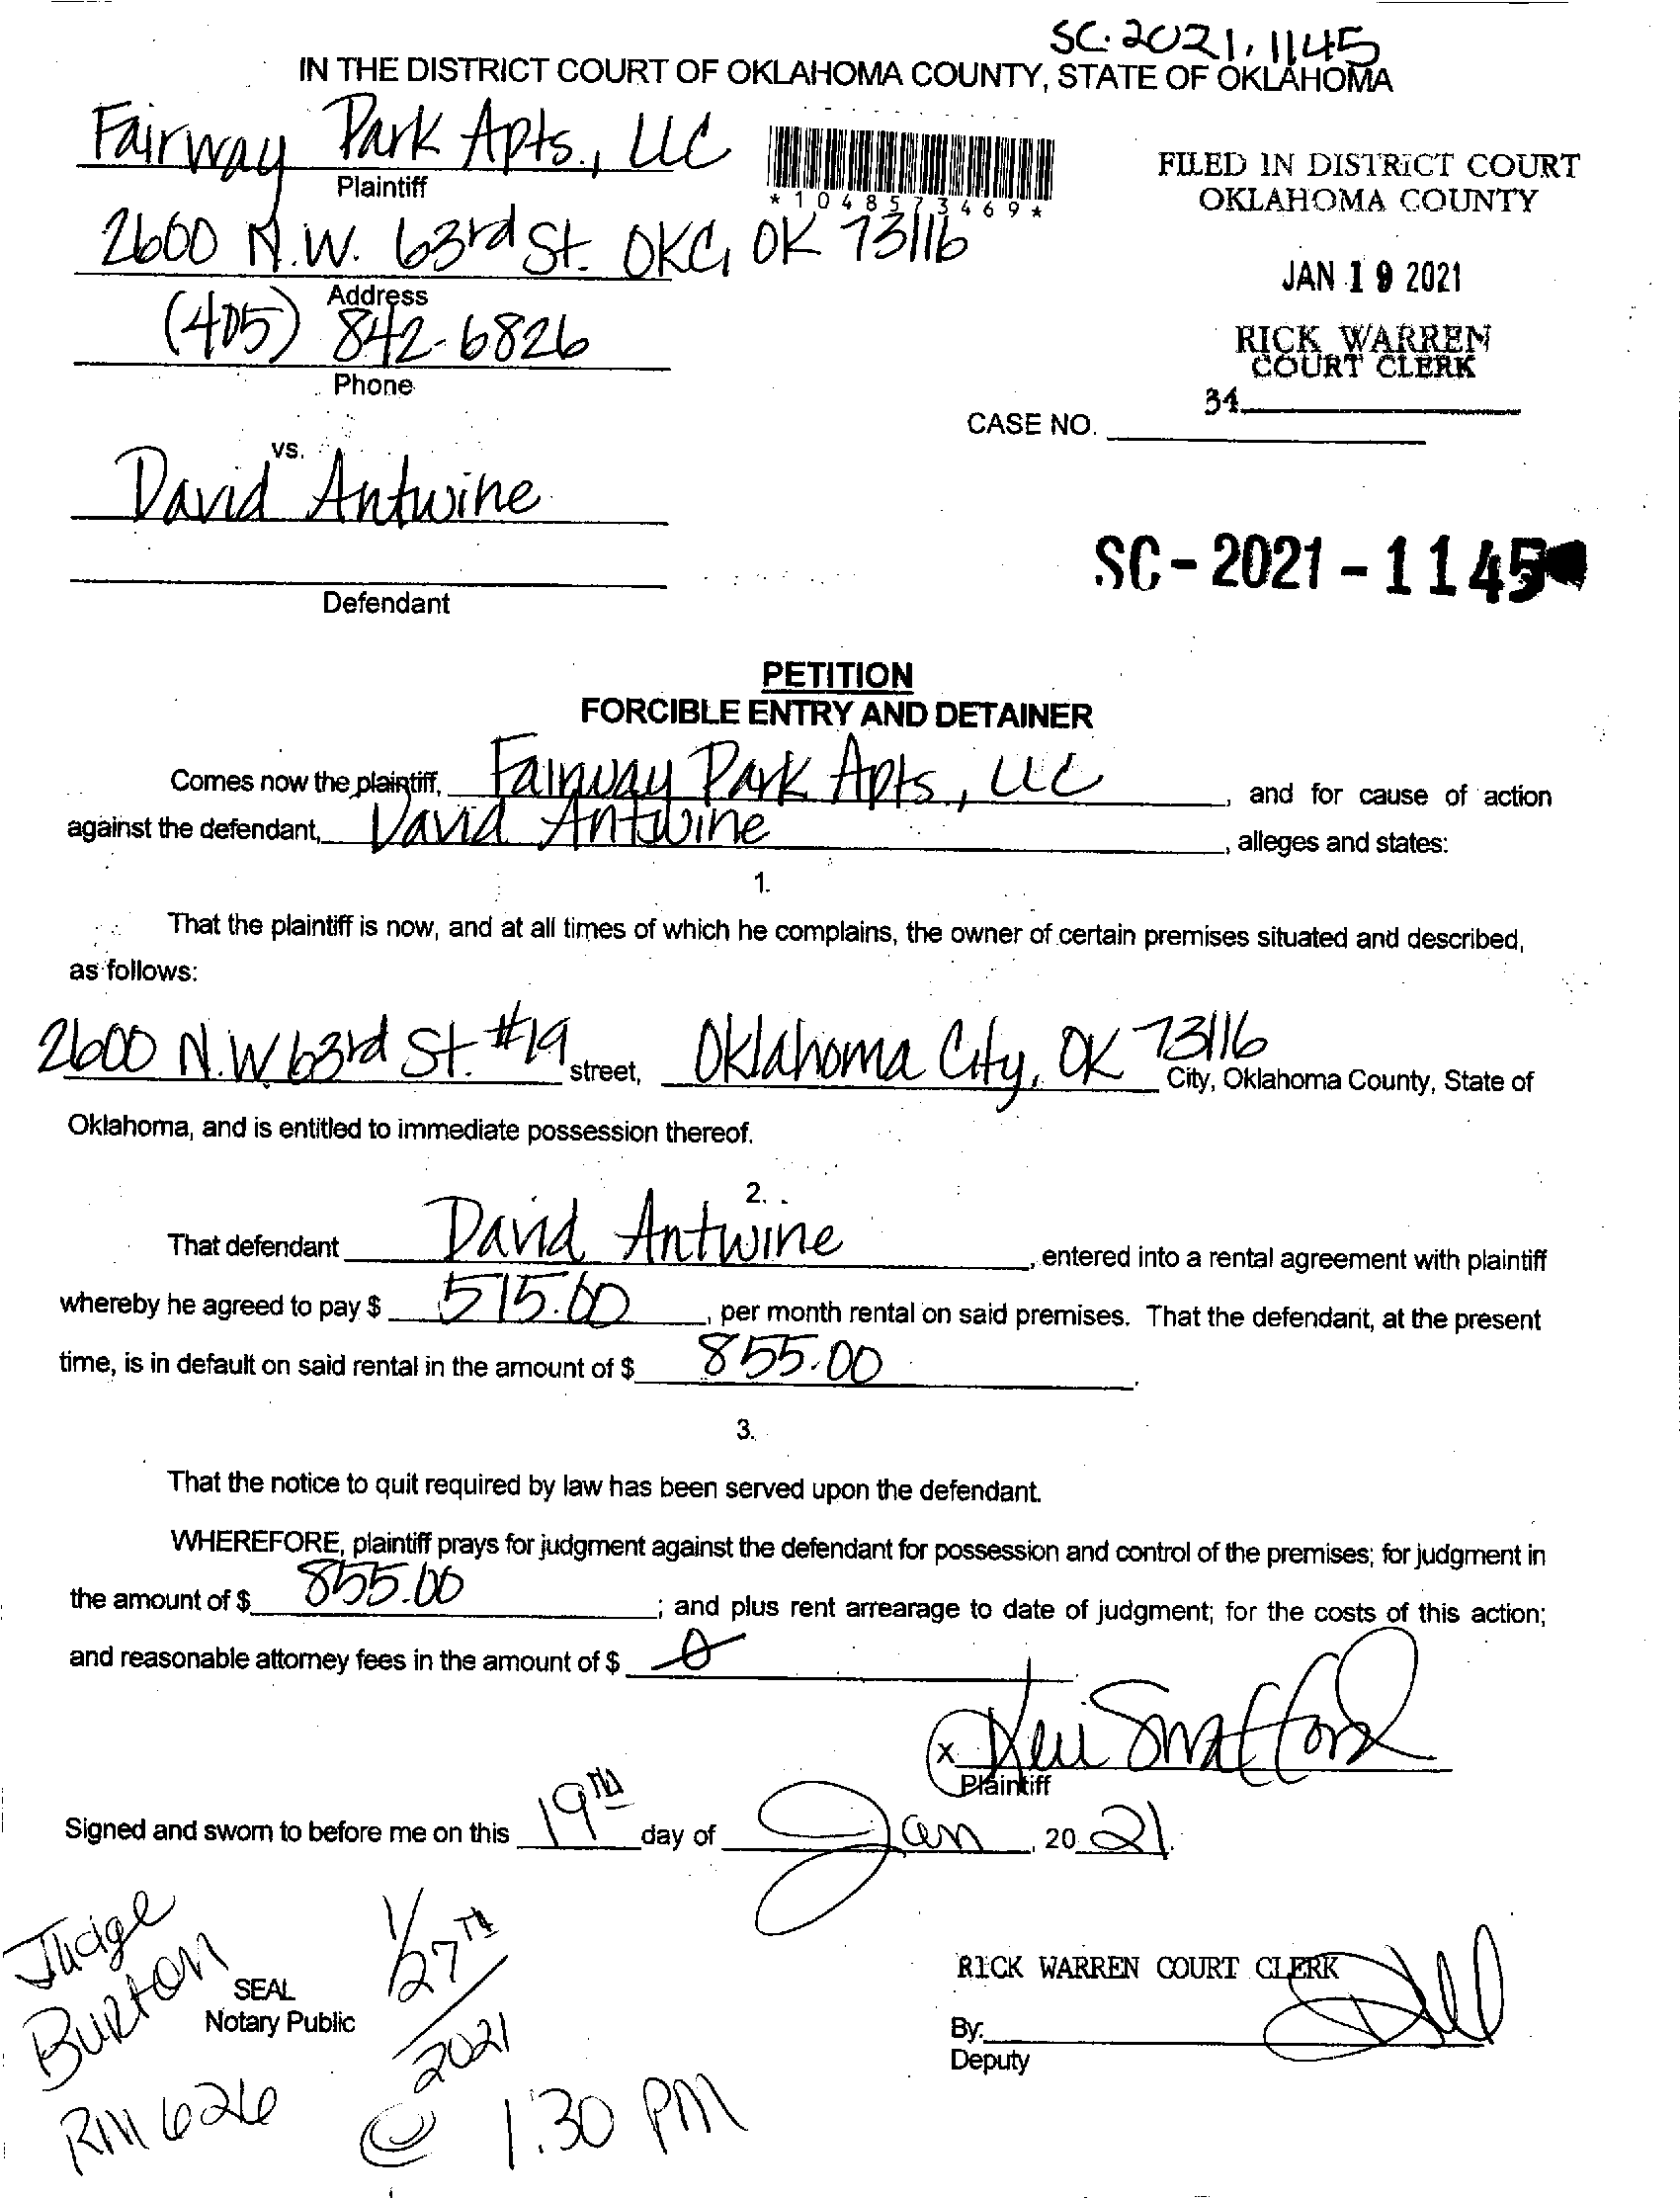 SC-2021-1145
IN THE DISTRICT COURT OF OKLAHOMA COUNTY, STATE OF OKLAHOMA
Fairway Park Apts., LLC
Plaintiff
*1048573469*
FILED IN DISTRICT COURT
OKLAHOMA COUNTY
2600 N.W. 63rd St. OKC, OK 73116
Address
JAN 19 2021
(405) 842-6826
Phone
RICK WARREN
COURT CLERK
34
CASE NO.
vs.
David Antwine
SC-2021-1145
Defendant
PETITION
FORCIBLE ENTRY AND DETAINER
Comes now the plaintiff, Fairway Park Apts., LLC, and for cause of action
against the defendant, David Antwine, alleges and states:
1.
That the plaintiff is now, and at all times of which he complains, the owner of certain premises situated and described,
as follows:
2600 N.W 63rd St. #19 street, Oklahoma City, OK 73116 City, Oklahoma County, State of
Oklahoma, and is entitled to immediate possession thereof.
2.
That defendant David Antwine, entered into a rental agreement with plaintiff
whereby he agreed to pay $ 515.00, per month rental on said premises. That the defendant, at the present
time, is in default on said rental in the amount of $ 855.00.
3.
That the notice to quit required by law has been served upon the defendant.
WHEREFORE, plaintiff prays for judgment against the defendant for possession and control of the premises; for judgment in
the amount of $ 855.00; and plus rent arrearage to date of judgment; for the costs of this action;
and reasonable attorney fees in the amount of $ 0
x
Plaintiff
Signed and sworn to before me on this 19th day of Jan, 20 21.
Judge
Burton
RM 626
SEAL
Notary Public
1/27th/2021
@ 1:30 PM
RICK WARREN COURT CLERK
By:
Deputy